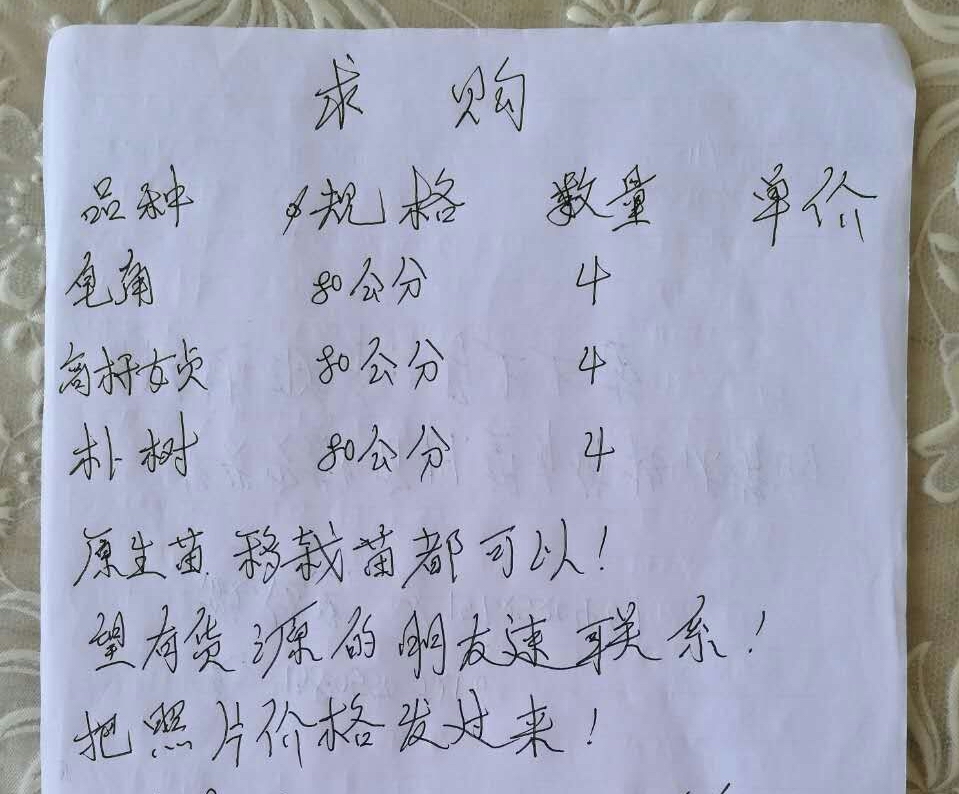 求购
品种 φ规格 数量 单价
80公分 4
高杆女贞 80公分 4
朴树 80公分 4
原生苗 移栽苗都可以！
望有货源的朋友速联系！
把照片价格发过来！